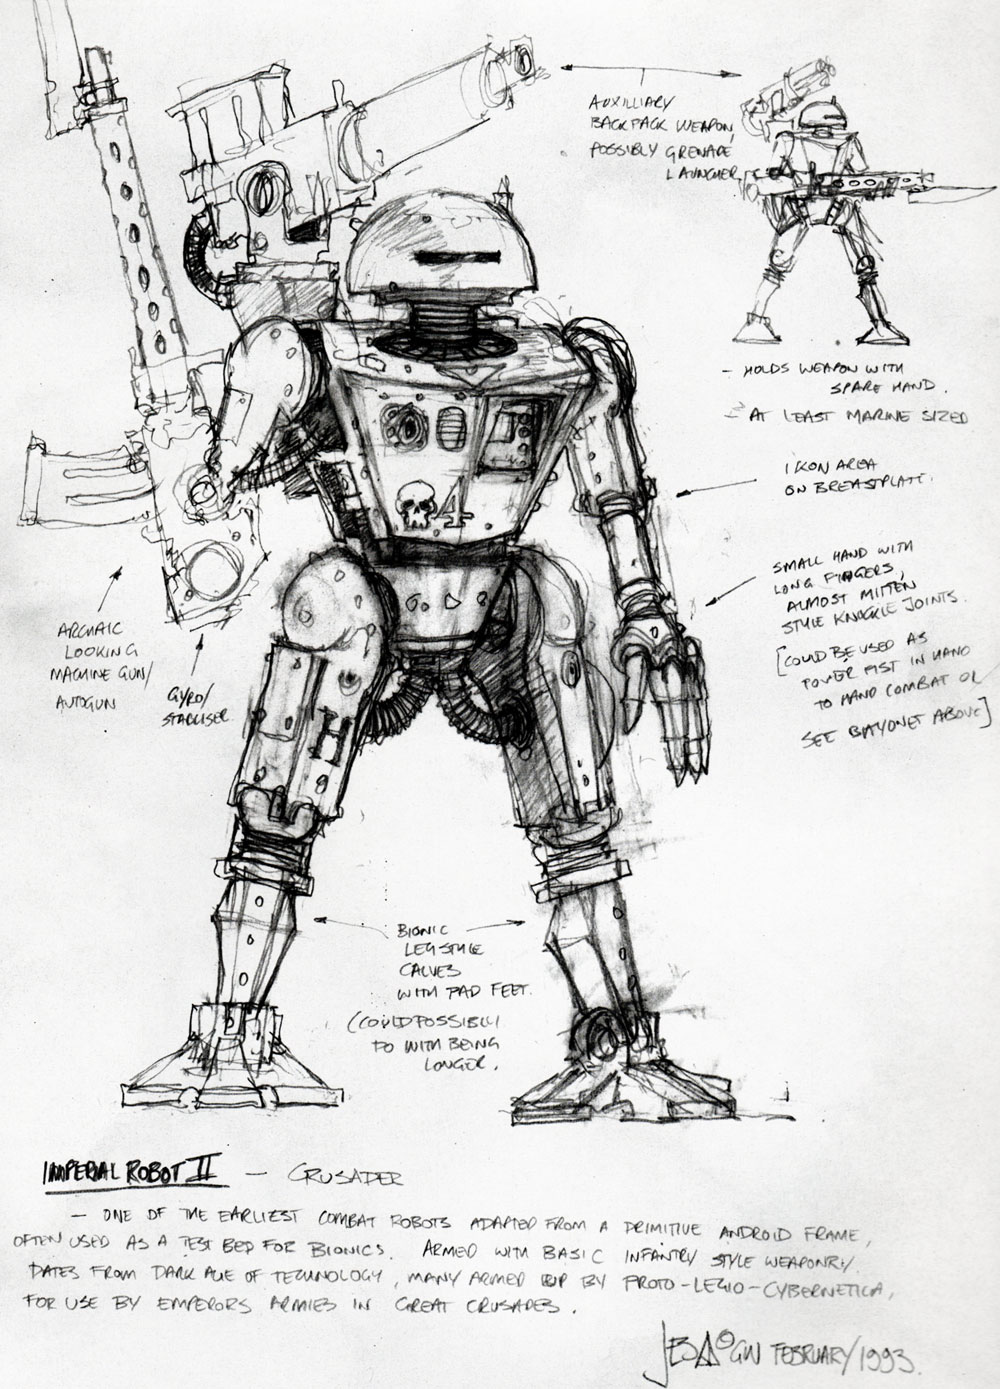 AUXILLIARY
BACKPACK WEAPON,
POSSIBLY GRENADE
LAUNCHER
- HOLDS WEAPON WITH
SPARE HAND.
- AT LEAST MARINE SIZED
IKON AREA
ON BREASTPLATE.
SMALL HAND WITH
LONG FINGERS,
ALMOST MITTEN
STYLE KNUCKLE JOINTS.
[COULD BE USED AS
POWER FIST IN HAND
TO HAND COMBAT OR
SEE BAYONET ABOVE]
4
H
ARCHAIC
LOOKING
MACHINE GUN/
AUTOGUN
GYRO/
STABILISER
BIONIC
LEG STYLE
CALVES
WITH PAD FEET.
(COULD POSSIBLY
DO WITH BEING
LONGER.
IMPERIAL ROBOT II - CRUSADER
- ONE OF THE EARLIEST COMBAT ROBOTS ADAPTED FROM A PRIMITIVE ANDROID FRAME,
OFTEN USED AS A TEST BED FOR BIONICS. ARMED WITH BASIC INFANTRY STYLE WEAPONRY.
DATES FROM DARK AGE OF TECHNOLOGY, MANY ARMED UP BY PROTO-LEGIO-CYBERNETICA,
FOR USE BY EMPERORS ARMIES IN GREAT CRUSADES.
JBA © GW FEBRUARY/1993.